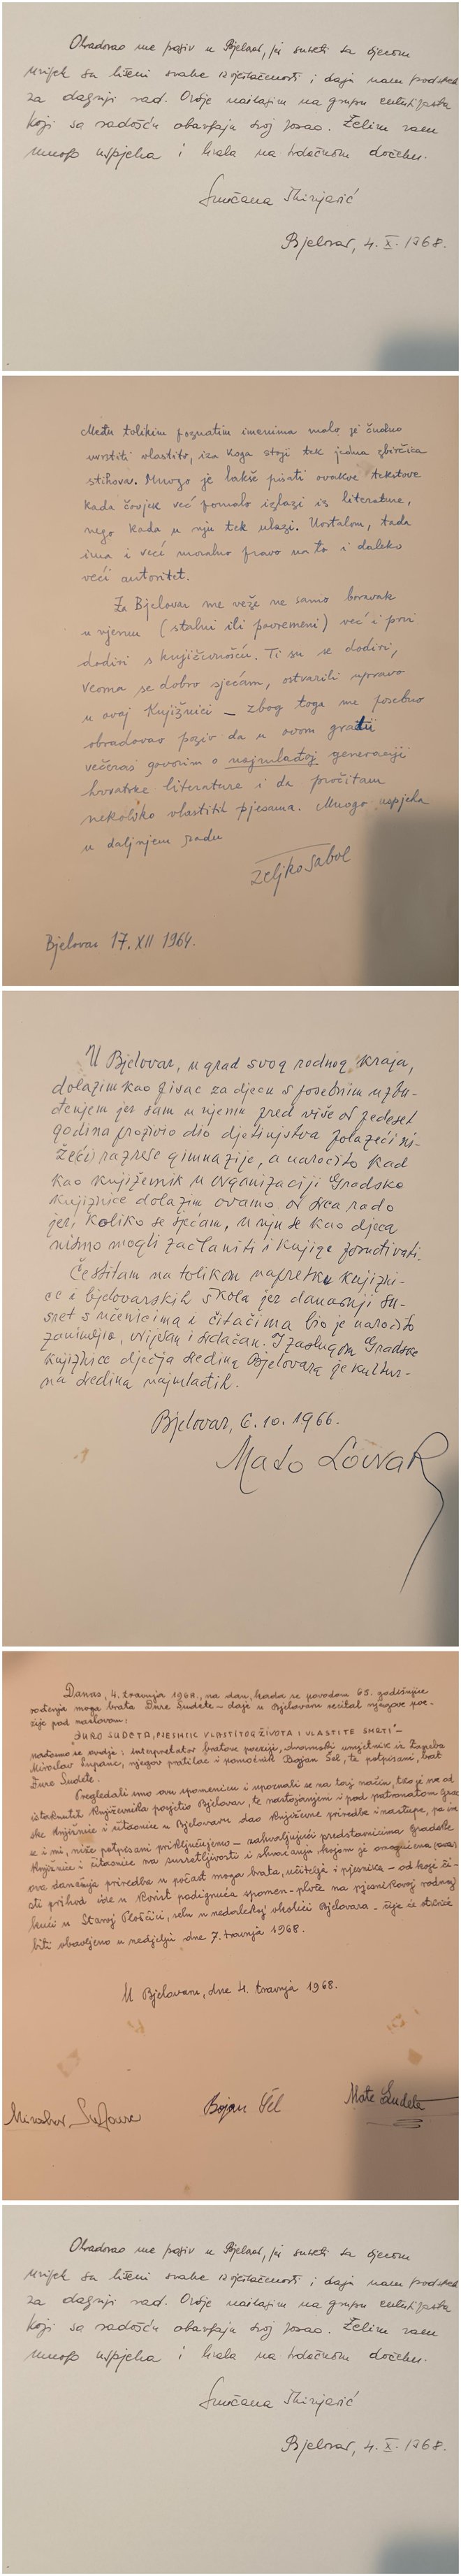 Obradovao me poziv u Bjelovar, jer susreti sa djecom
uvijek su lišeni svake izvještačenosti i daju nam podstrek
za daljnji rad. Ovdje nailazim na grupu entuzijasta
koji sa radošću obavljaju svoj posao. Želim vam
mnogo uspjeha i hvala na srdačnom dočeku.
Sunčana Škrinjarić
Bjelovar, 4. X. 1968.
Među tolikim poznatim imenima malo je čudno
uvrstiti vlastito, iza koga stoji tek jedna zbirčica
stihova. Mnogo je lakše pisati ovakve tekstove
kada čovjek već pomalo izlazi iz literature,
nego kada u nju tek ulazi. Uostalom, tada
ima i veći moralno pravo na to i daleko
veći autoritet.
Za Bjelovar me veže ne samo boravak
u njemu (stalni ili povremeni) već i prvi
dodiri s književnošću. Ti su se dodiri,
veoma se dobro sjećam, ostvarili upravo
u ovoj Knjižnici — zbog toga me posebno
obradovao poziv da u ovom gradu
večeras govorim o najmlađoj generaciji
hrvatske literature i da pročitam
nekoliko vlastitih pjesama. Mnogo uspjeha
u daljnjem radu
Željko Sabol
Bjelovar 17. XII 1964.
U Bjelovar, u grad svog rodnog kraja,
dolazim kao pisac za djecu s posebnim uzbu-
đenjem jer sam u njemu pred više od pedeset
godina proživio dio djetinjstva polazeći ni-
žeći razrede gimnazije, a naročito kad
kao književnik u organizaciji Gradske
knjižnice dolazim ovamo od srca rado
jer, koliko se sjećam, u nju se kao djeca
nismo mogli začlaniti i knjige posuđivati.
Čestitam na tolikom napretku knjižni-
ce i bjelovarskih škola jer današnji su-
sret s učenicima i čitačima bio je naročito
zanimljiv, vrijedan i srdačan. I zaslugom Gradske
knjižnice dječja sredina Bjelovara je kultur-
na sredina najmlađih.
Bjelovar, 6. 10. 1966.
Mato Lovrak
Danas, 4. travnja 1968., na dan, kada se povodom 65. godišnjice
rođenja moga brata Đure Sudete — daje u Bjelovaru recital njegove poe-
zije pod naslovom:
"ĐURO SUDETA, PJESNIK VLASTITOG ŽIVOTA I VLASTITE SMRTI" —
našli smo se ovdje: interpretator bratove poezije, dramski umjetnik iz Zagreba
Miroslav Šupanc, njegov pratilac i pomoćnik Bojan Šel, te potpisani, brat
Đure Sudete.
Pregledali smo ovu spomenicu i upoznali se na taj način, tko je sve od
istaknutih književnika posjetio Bjelovar, te nastojanjem i pod patronatom Grad-
ske knjižnice i čitaonice u Bjelovaru dao književne priredbe i nastupe, pa smo
se i mi, niže potpisani priključujemo — zahvaljujući predstavnicima Gradske
knjižnice i čitaonice na susretljivosti i shvaćanju, kojom je omogućena
ova današnja priredba u počast moga brata, učitelja i pjesnika — od koje či-
sti prihod ide u korist podignuća spomen-ploče na pjesnikovoj rodnoj
kući u Staroj Pločici, selu u nedalekoj okolici Bjelovara — čije će otkriće
biti obavljeno u nedjelju dne 7. travnja 1968.
U Bjelovaru, dne 4. travnja 1968.
Miroslav Bojan Šel Mato Sudeta
Obradovao me poziv u Bjelovar, jer susreti sa djecom
uvijek su lišeni svake izvještačenosti i daju nam podstrek
za daljnji rad. Ovdje nailazim na grupu entuzijasta
koji sa radošću obavljaju svoj posao. Želim vam
mnogo uspjeha i hvala na srdačnom dočeku.
Sunčana Škrinjarić
Bjelovar, 4. X. 1968.